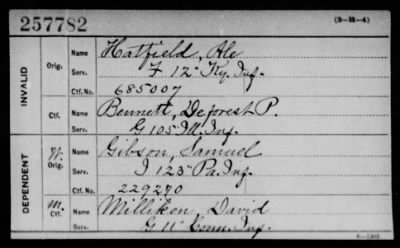 257782
(3-M-4)
INVALID
Orig.
Name Hatfield, Ale
Serv. F 12" Ky. Inf.
Ctf. No. 685007
Ctf.
Name Bennett, Deforest P.
Serv. G 105 Ill. Inf.
DEPENDENT
W. Orig.
Name Gibson, Samuel
Serv. I 123" Pa. Inf.
Ctf. No. 229270
M. Ctf.
Name Milliken, David
Serv. G 11" Conn. Inf.